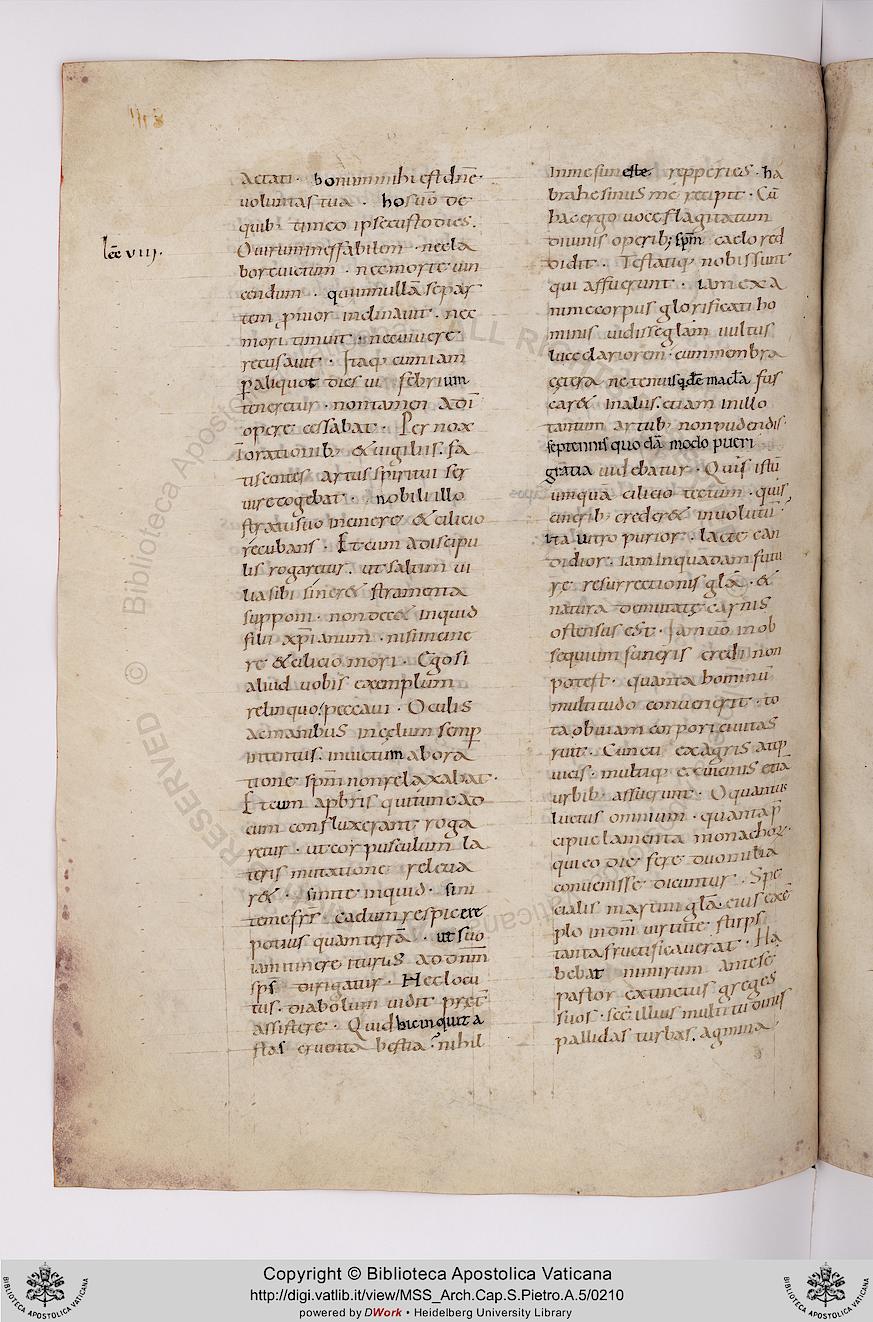 lec viii.
aetati. bonum mihi est dne
voluntas tua. hos vo de
quib. timeo ipse custodies.
O virum ineffabilem. nec la
bore victum. nec morte vin
cendum. qui in nullā se par
tem prior inclinavit. nec
mori timuit. nec vivere
recusavit. Itaq. cum iam
p aliquot dies vi febrium
teneretur. non tamen a di
opere cessabat. Pernox
in orationib. & vigiliis. fa
tiscentes artus spiritui ser
vire cogebat. nobili illo
stratu suo in cinere & cilicio
recubans. Et cum a discipu
lis rogaretur. ut saltim vi
lia sibi siner& stramenta
supponi. non dec& inquid
filii xpianum. nisi in cine
re & cilicio mori. Ego si
aliud vobis exemplum
relinquo. peccavi. Oculis
ac manibus in celum semp
intentus. invictum ab ora
tione spm non relaxabat.
Et cum a prbris qui tunc ad
eum confluxerant roga
retur. ut corpusculum la
teris mutatione releva
r&. sinite inquid. sini
te me frs. caelum respicere
potius quam terrā. ut suo
iam itinere iturus ad dnm
sps dirigatur. Hec locu
tus. diabolum vidit prope
assistere. Quid hic inquit a
stas cruenta bestia. nihil
in me funeste repperies. ha
brahe sinus me recipit. Cū
hac ergo voce flagitatum
divinis operib; spm caelo red
didit. Testatiq. nobis sunt
qui affuerunt. iam exa
nime corpus glorificati ho
minis vidisse glam vultus
luce clariorem. cum membra
cetera ne tenuisqdē macla fus
car&. In aliis etiam in illo
tantum artub. non pudendis.
septennis quodā modo pueri
gratia videbatur. Quis istū
umquā cilicio tectum. quis
cinerib. creder& involutū.
ita vitro purior. lacte can
didior. iam in quadam futu
re resurrectionis glā. &
natura demutate carnis
ostensus est. Iam vo in ob
sequium funeris credi non
potest. quanta hominū
multitudo convenerit. to
ta obviam corpori civitas
ruit. Cuncti ex agris atq.
vicis. multiq. ex vicinis etiā
urbib. affuerunt. O quantus
luctus omnium. quanta p
cipue lamenta monachor.
qui eo die fere duo milia
convenisse dicuntur. Spe
cialis martini glā. eius exē
plo in dni virtute. stirps
tanta fructificaverat. Ha
bebat nimirum ante se
pastor extinctus greges
suos. scē illius multitudinis
pallidas turbas. agmina
Copyright © Biblioteca Apostolica Vaticana
http://digi.vatlib.it/view/MSS_Arch.Cap.S.Pietro.A.5/0210
powered by DWork • Heidelberg University Library